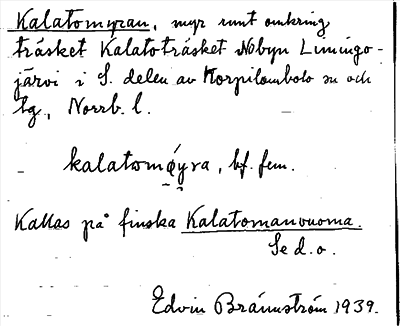 Kalatomyran, myr runt omkring
träsket Kalatoträsket Nobyn Limingo-
järvi i S. delen av Korpilombolo sn och
tg., Norrb. l.
kalatomǿyra, bf. fem.
Kallas på finska Kalatomanvuoma.
Se d. o.
Edvin Brännström 1939.